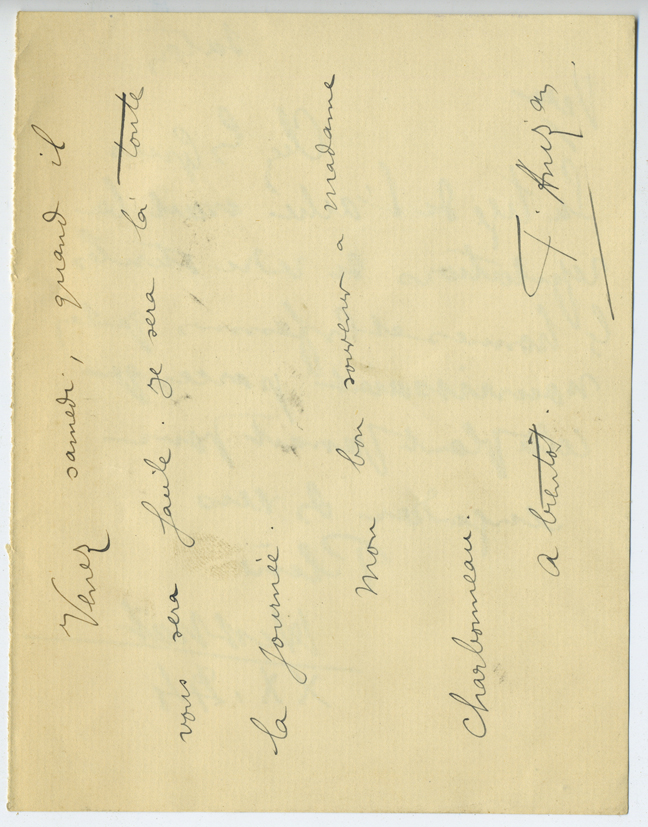 Venez samedi, quand il
vous sera facile. Je sera là toute
la journée.
Mon bon souvenir a madame
Charbonneau.
a bientôt.
F. Anizan.